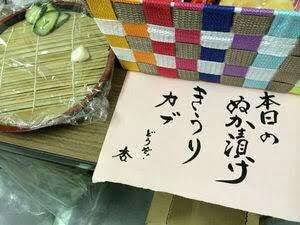 本日の
ぬか漬け
きうり
カブ
どうぞ。